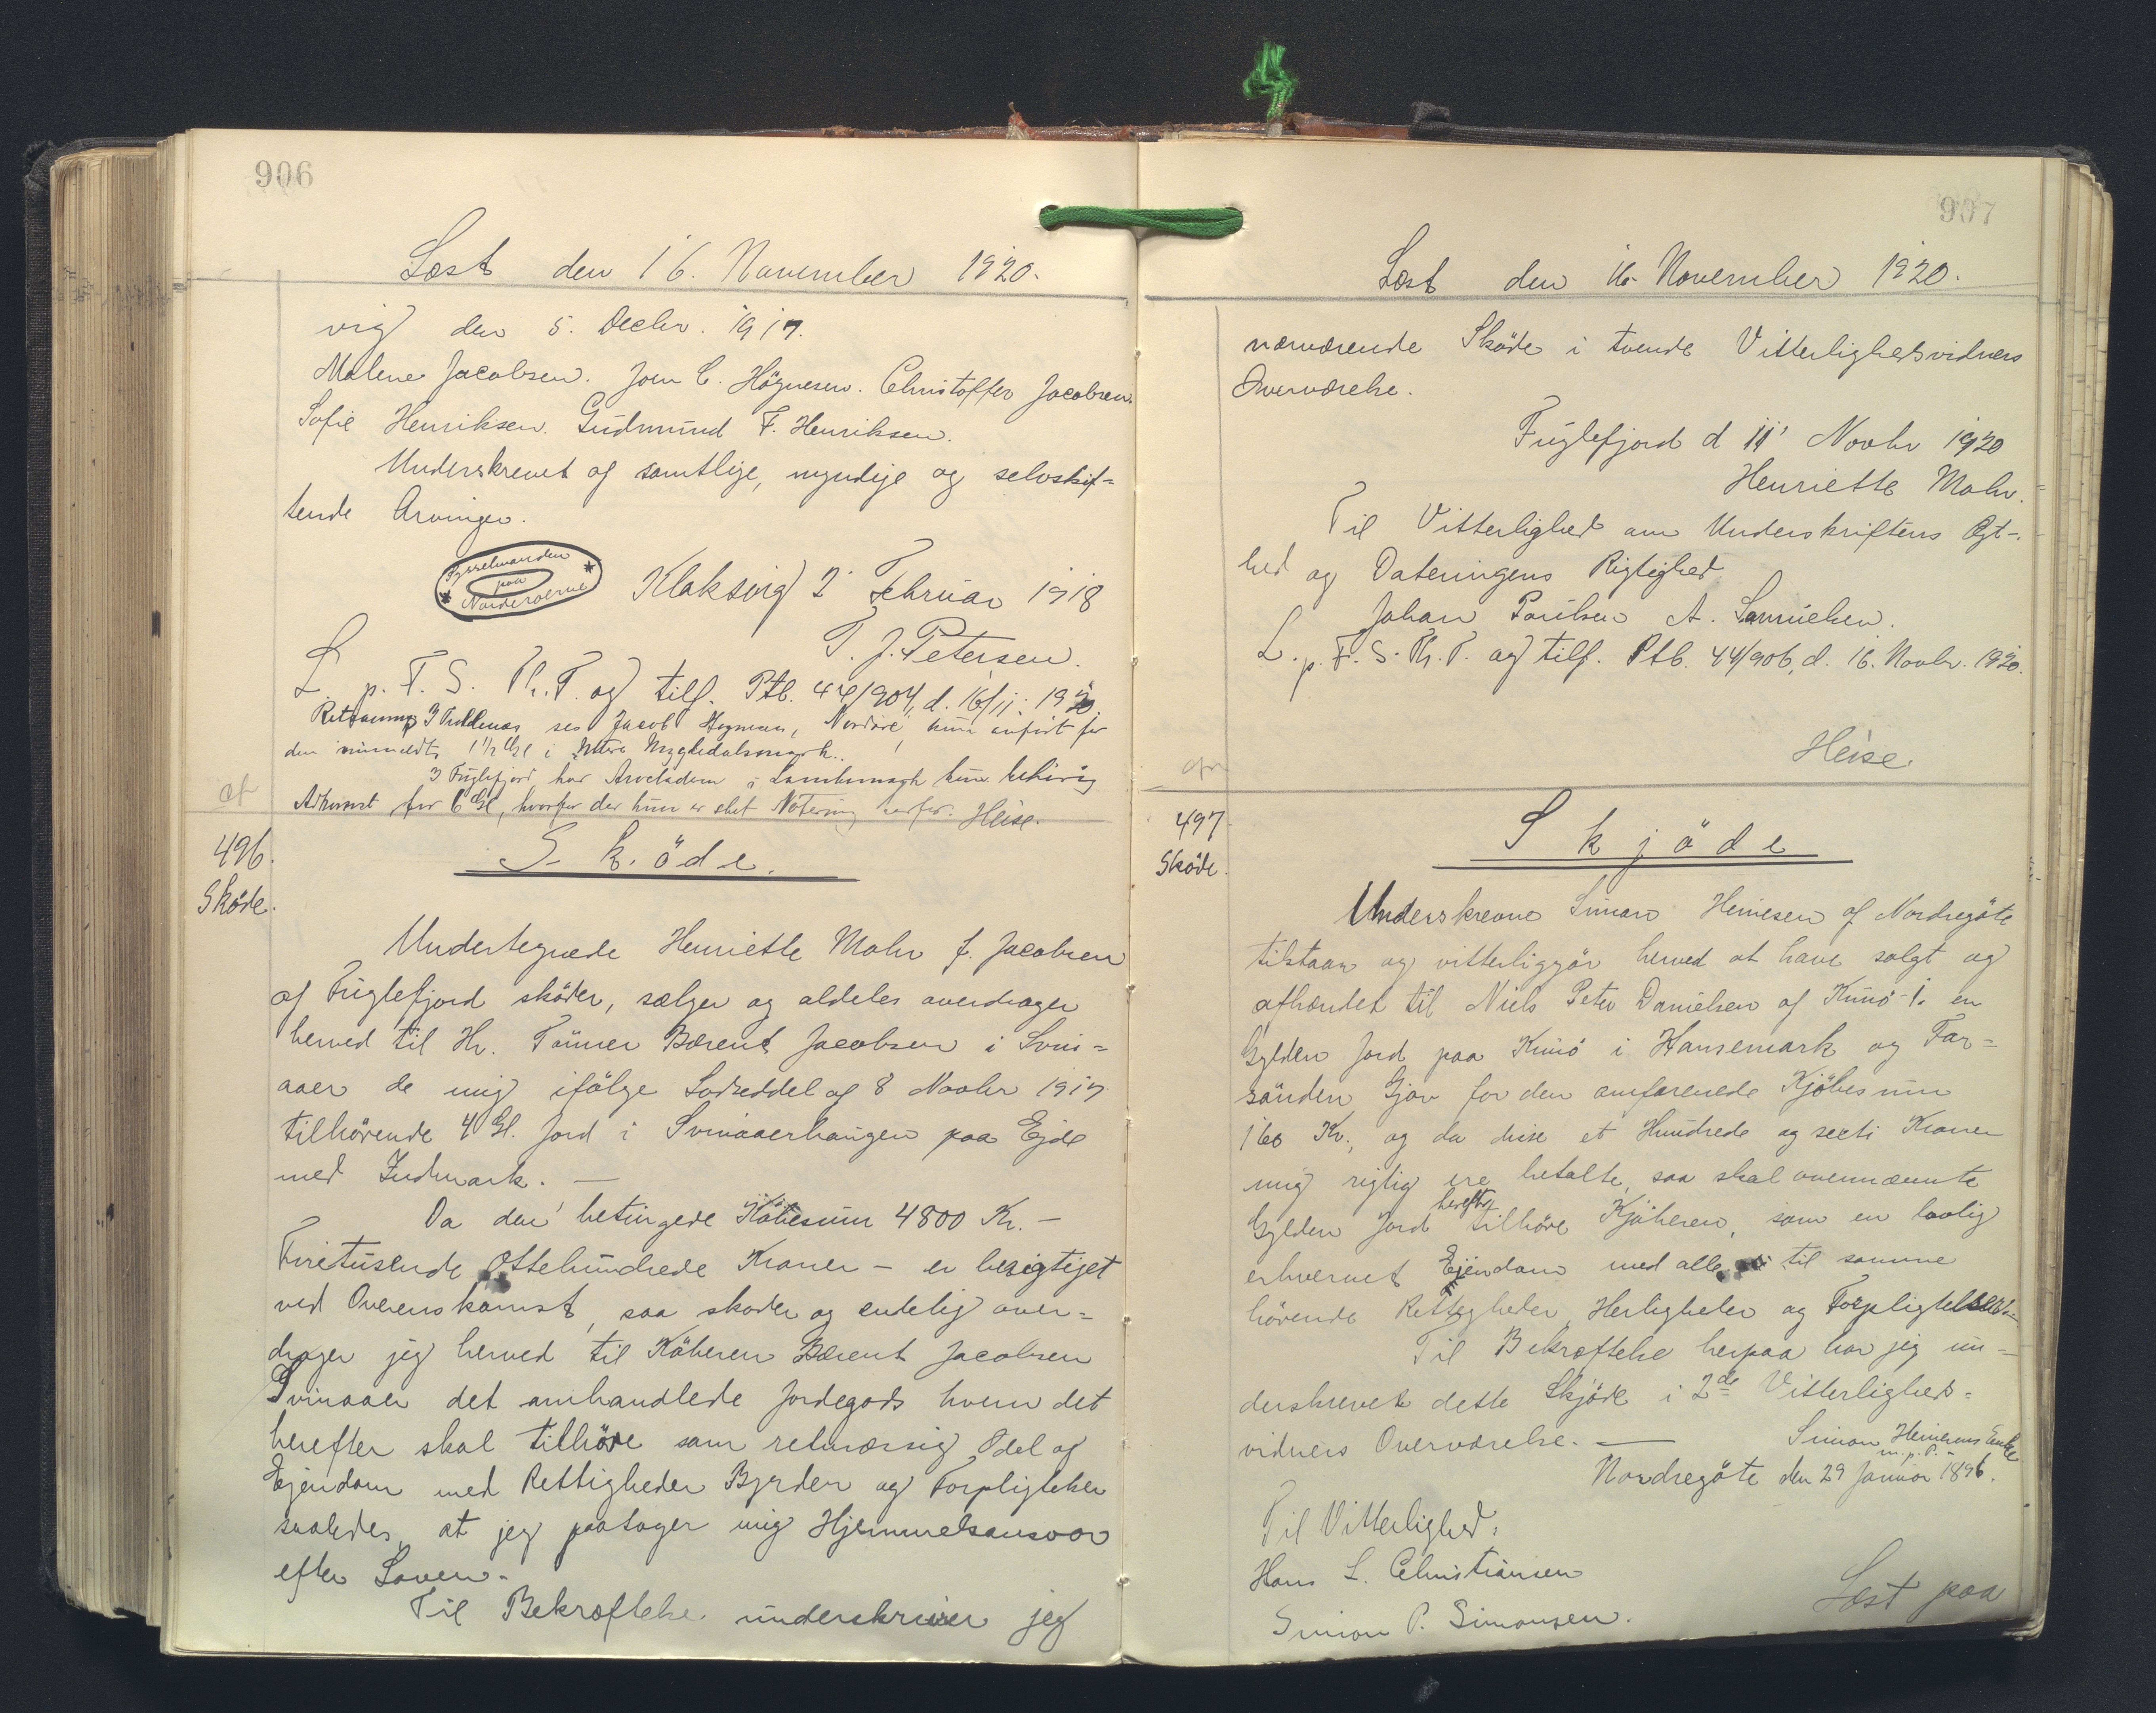 906
Læst den 16. November 1920.
vig den 5. Decbr. 1917.
Malene Jacobsen. Joen C. Högnesen. Christoffer Jacobsen.
Sofie Henriksen. Gudmund F. Henriksen.
Underskrevet af samtlige, myndige og selvskif-
tende Arvinger.
Sysselmanden
paa
Norderøerne
Klaksvig 2 Februar 1918
T. J. Petersen.
L. p. F. S. Th. T. og tilf. Ptb. 44/904, d. 16/11. 1920.
ses Jacob kun anført for
den 1 1/2 Gl i
I Fuglefjord har kun behörig
Adkomst for 6 Gl, hvorfor der kun er sket Notering herfor. Heise.
496.
Sköde.
Sköde.
Undertegnede Henriette Mohr f. Jacobsen
af Fuglefjord sköder, sælger og aldeles overdrager
herved til Hr. Bærent Jacobsen i Svin-
aaer de mig ifölge Lodseddel af 8 Novbr 1917
tilhörende 4 Gl. Jord i Svinaaerhaugen paa Ejde
med Indmark. —
Da den betingede Köbesum 4800 Kr. —
Firetusende Ottehundrede Kroner — er berigtiget
ved Overenskomst, saa skøder og endelig over-
drager jeg herved til Köberen Bærent Jacobsen
Svinaaer det omhandlede Jordegods hvem det
herefter skal tilhöre som retmæssig Odel og
Ejendom med Rettigheder Byrder og Forpligtelser
saaledes, at jeg paatager mig Hjemmelsansvar
efter Loven.
Til Bekræftelse underskriver jeg
907
Læst den 16. November 1920.
nærværende Sköde i tvende Vitterlighedsvidners
Overværelse.
Fuglefjord d 11' Novbr 1920
Henriette Mohr.
Til Vitterlighed om Underskriftens Ægt-
hed og Dateringens Rigtighed
Johan Poulsen A. Samuelsen.
L. p. F. S. Th. T. og tilf. Ptb. 44/906, d. 16. Novbr. 1920.
Heise.
497
Sköde.
Skjöde
Underskrevne Simon Heinesen af Nordregöte
tilstaar og vitterliggör herved at have solgt og
afhændet til Niels Peter Danielsen af Kunö 1. en
Gylden Jord paa Kunö i Hansemark og For-
sönden Gjov for den omforenede Kjöbesum
160 Kr., og da disse et Hundrede og sexti Kroner
mig rigtig ere betalte, saa skal ovennævnte
Gylden Jord herefter tilhöre Kjöberen, som en lovlig
erhvervet Ejendom med alle til samme
hörende Rettigheder, Herligheder og Forpligtelser.
Til Bekræftelse herpaa har jeg un-
derskrevet dette Skjöde i 2de Vitterligheds-
vidners Overværelse. —
Simon Heinesens Enke
m. p. P.
Nordregöte den 29 Januar 1896.
Til Vitterlighed:
Hans L. Christiansen
Simon P. Simonsen.
Læst paa